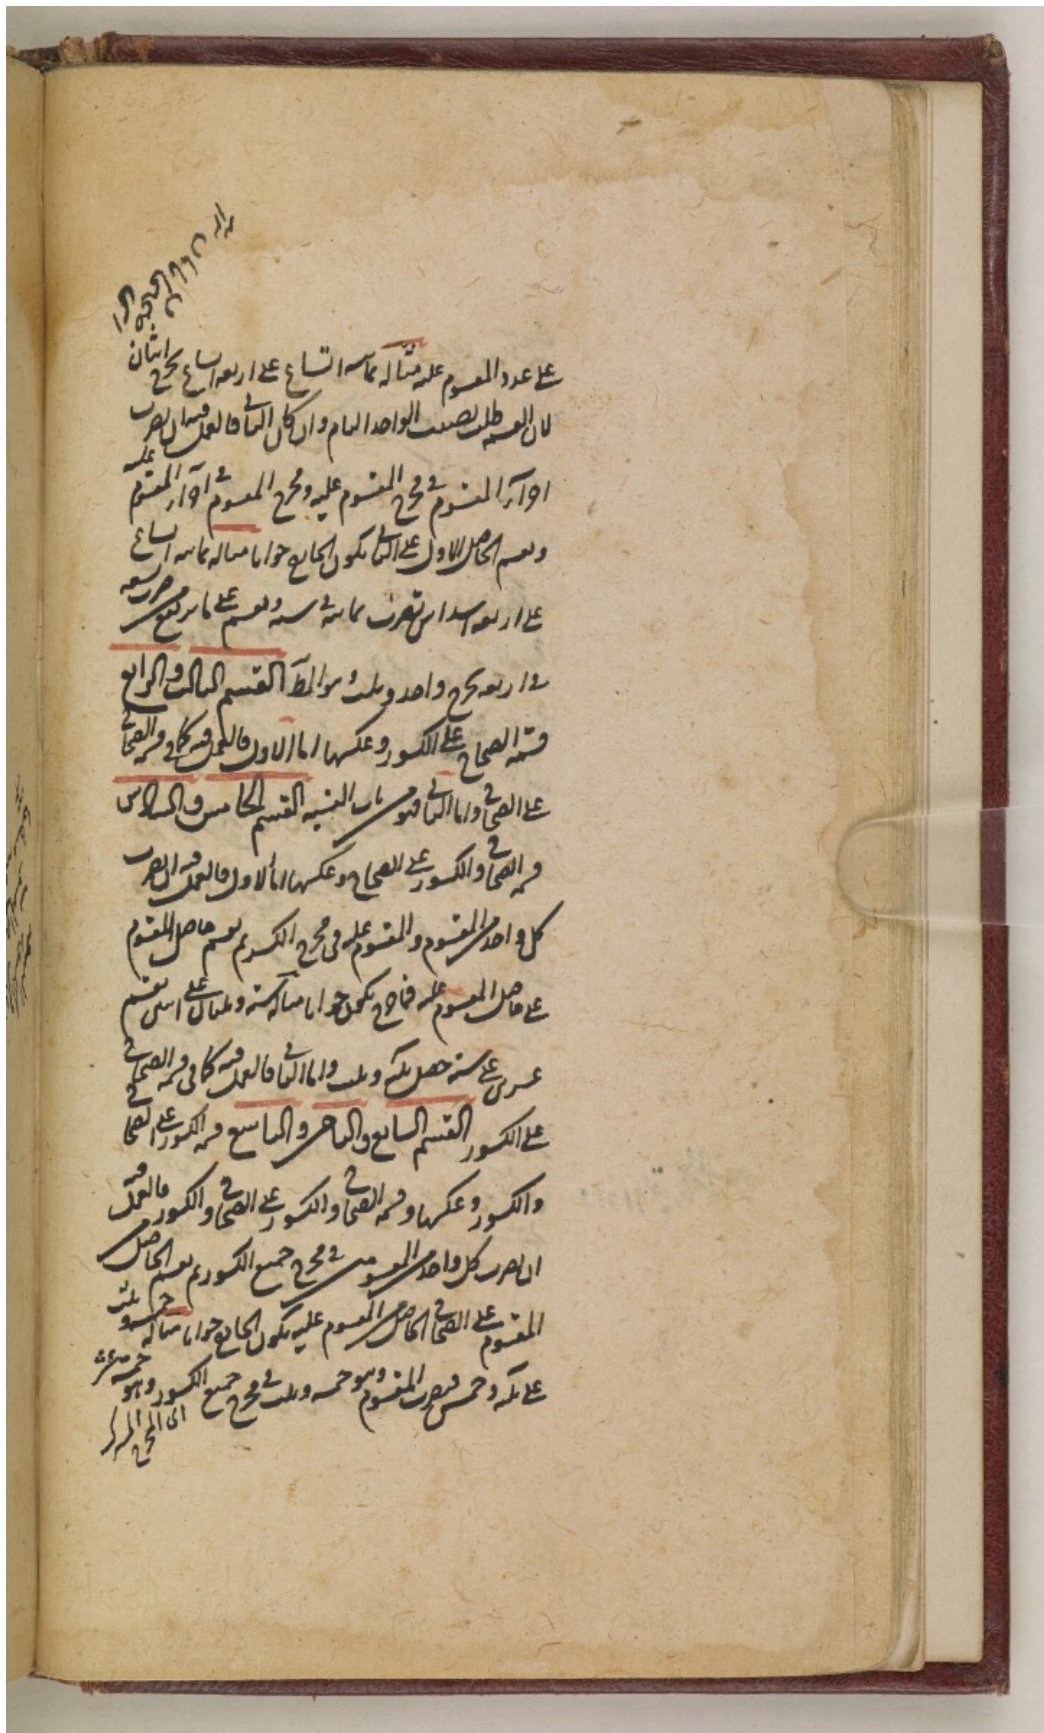 على عدد المقسوم عليه مثاله ثمانية اتساع على اربعة اتساع يخرج اثنان
لان القسمة طلب نصيب الواحد التام وان كان الثاني فالعمل فيه ان يضرب
اجزاء المقسوم في مخرج المقسوم عليه ومخرج المقسوم في اجزاء المقسوم عليه
ويقسم الحاصل الاول على الثاني يكون الخارج جوابا مثاله ثمانية اتساع
على اربعة اسداس تضرب ثمانية في ستة ويقسم على ما يرتفع من ضرب تسعة
في اربعة يخرج واحد وثلث وهو المط القسم الثالث والرابع
قسمة الصحاح على الكسور وعكسها اما الاول فالعمل فيه كما في قسمة الصحاح
على الصحاح واما الثاني فهو من باب النسبة القسم الخامس والسادس
قسمة الصحاح والكسور على الصحاح وعكسها اما الاول فالعمل فيه ان يضرب
كل واحد من المقسوم والمقسوم عليه في مخرج الكسر ثم يقسم حاصل المقسوم
على حاصل المقسوم عليه فما خرج يكون جوابا مثاله ستة وثلثان على اثنين يقسم
عشرين على ستة حصل ثلثة وثلث واما الثاني فالعمل فيه كما في قسمة الصحاح
على الكسور القسم السابع والثامن والتاسع قسمة الكسور على الصحاح
والكسور وعكسها وقسمة الصحاح والكسور على الصحاح والكسور فالعمل فيه
ان يضرب كل واحد من المقسومين في مخرج جميع الكسور ثم يقسم الحاصل من
المقسوم على الصحاح الحاصل من المقسوم عليه يكون الخارج جوابا مثاله خمسة وثلث
على ثلثة وخمس فيضرب المقسوم وهو خمسة وثلث في مخرج جميع الكسور وهو خمسة عشر
اى المخرج المشترك